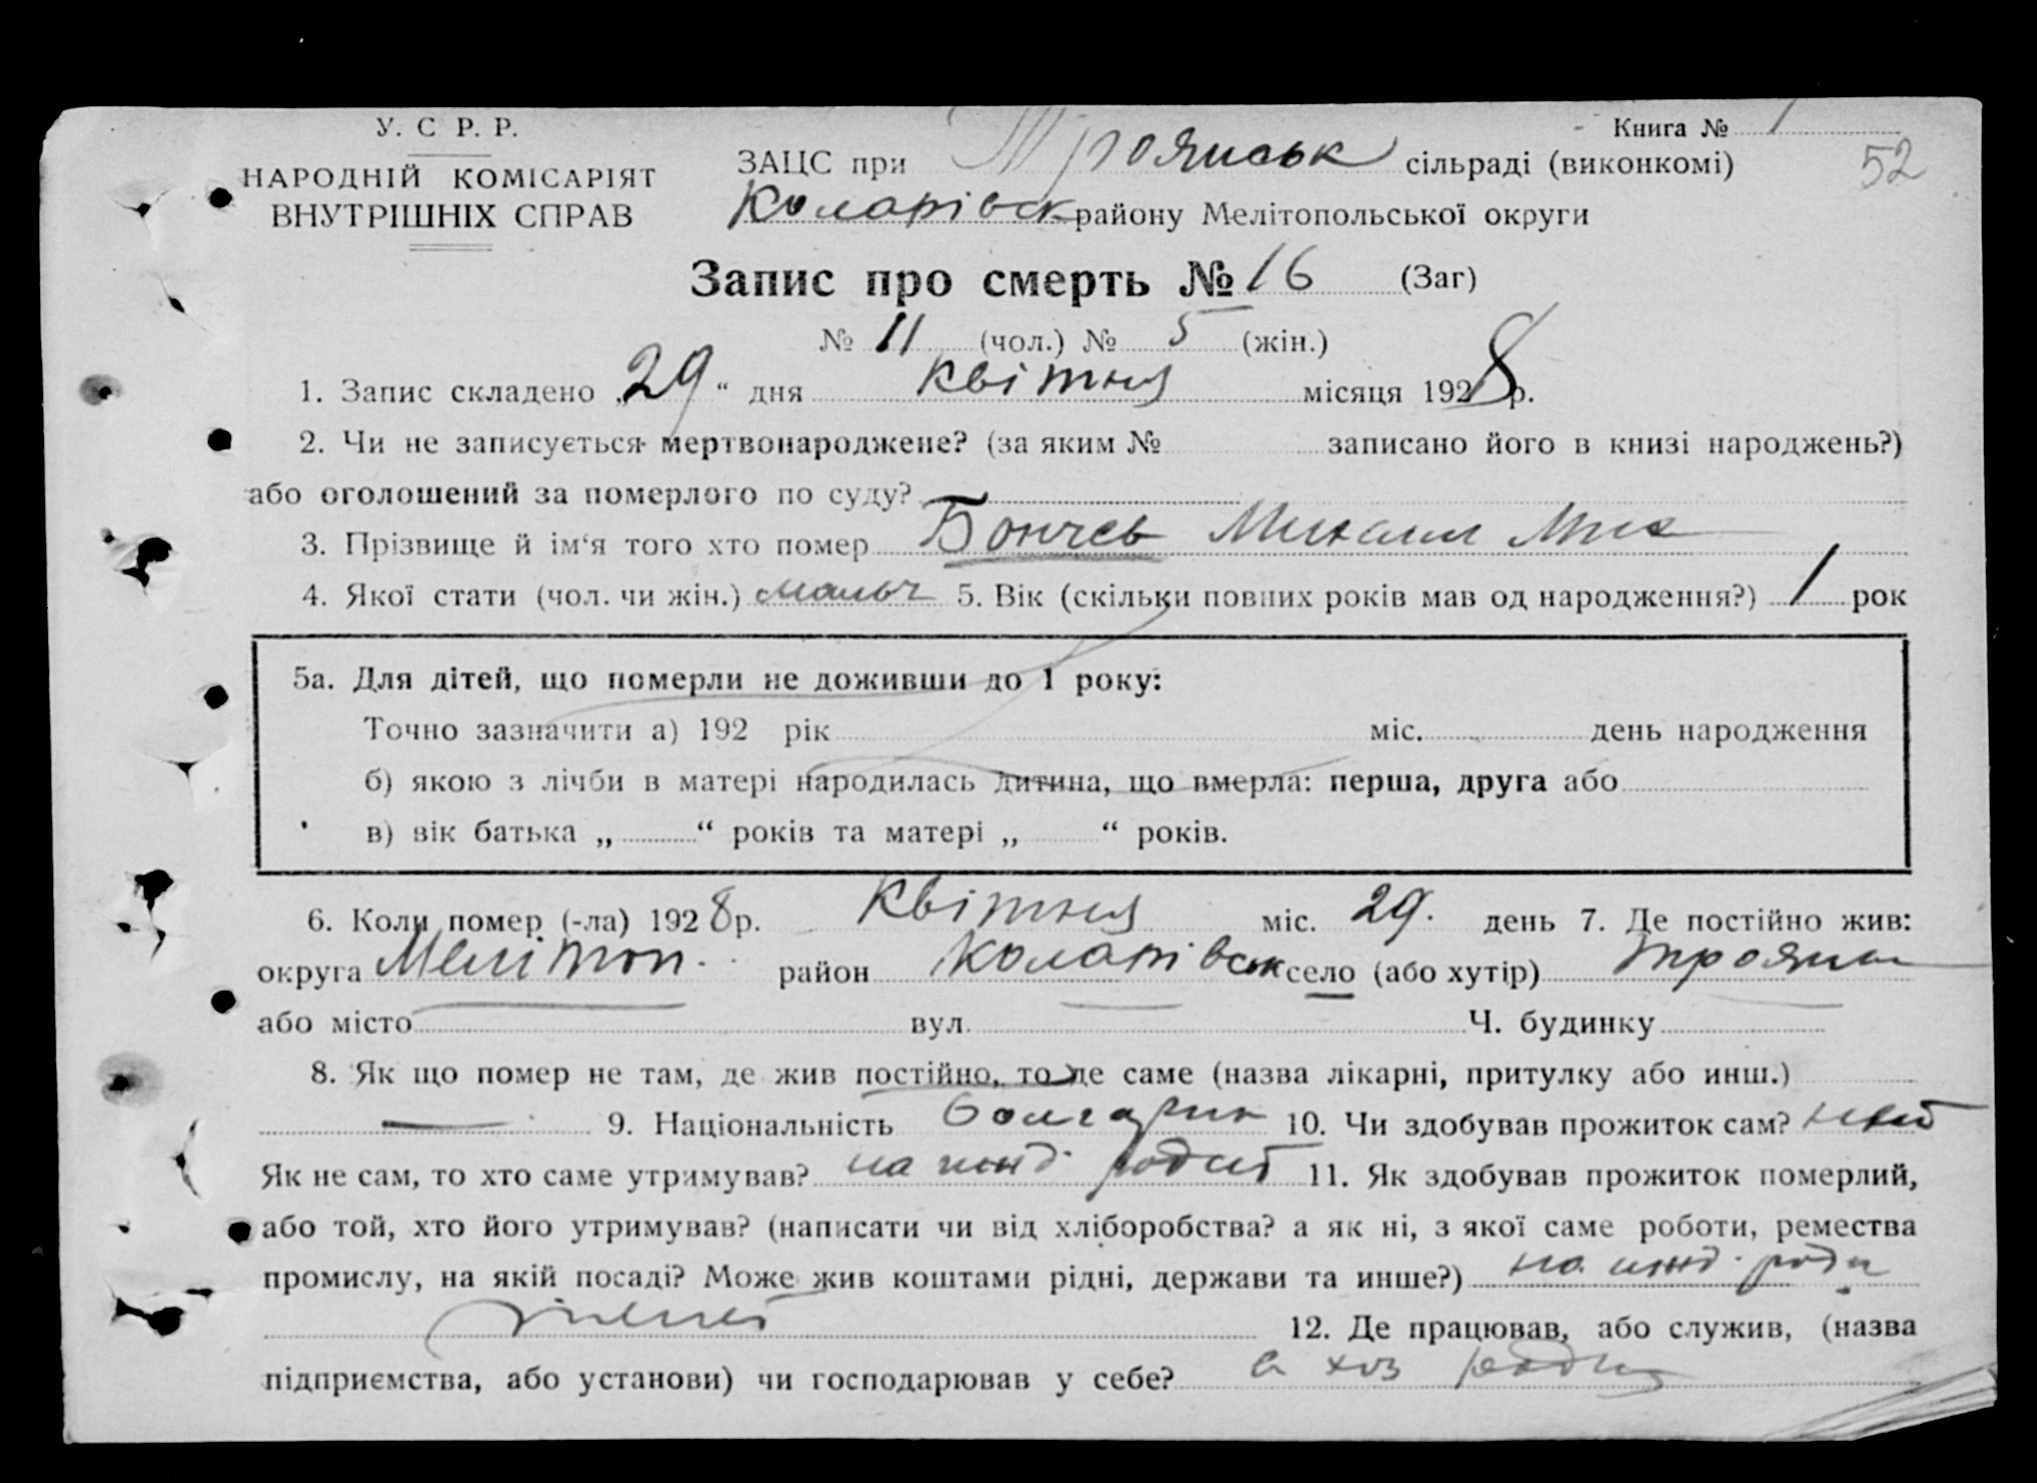 У. С Р. Р.
НАРОДНІЙ КОМІСАРІЯТ
ВНУТРІШНІХ СПРАВ
Книга № 1
52
ЗАЦС при Троянськ сільраді (виконкомі)
Коларівск району Мелітопольської округи
Запис про смерть № 16 (Заг)
№ 11 (чол.) № 5 (жін.)
1. Запис складено „29“ дня квітня місяця 1928 р.
2. Чи не записується мертвонароджене? (за яким № записано його в книзі народжень?)
або оголошений за померлого по суду?
3. Прізвище й ім‘я того хто помер Бончев Михаил Мих
4. Якої стати (чол. чи жін.) мальч 5. Вік (скільки повних років мав од народження?) 1 рок
5а. Для дітей, що померли не доживши до 1 року:
Точно зазначити а) 192 рік міс. день народження
б) якою з лічби в матері народилась дитина, що вмерла: перша, друга або
в) вік батька „ “ років та матері „ “ років.
6. Коли помер (-ла) 1928 р. квітня міс. 29. день 7. Де постійно жив:
округа Мелітоп. район Коларівськ село (або хутір) Троян
або місто вул. Ч. будинку
8. Як що помер не там, де жив постійно, то де саме (назва лікарні, притулку або инш.)
— 9. Національність болгарин 10. Чи здобував прожиток сам?
Як не сам, то хто саме утримував? на 11. Як здобував прожиток померлий,
або той, хто його утримував? (написати чи від хліборобства? а як ні, з якої саме роботи, ремества
промислу, на якій посаді? Може жив коштами рідні, держави та инше?) на
12. Де працював, або служив, (назва
підприємства, або установи) чи господарював у себе? в хоз